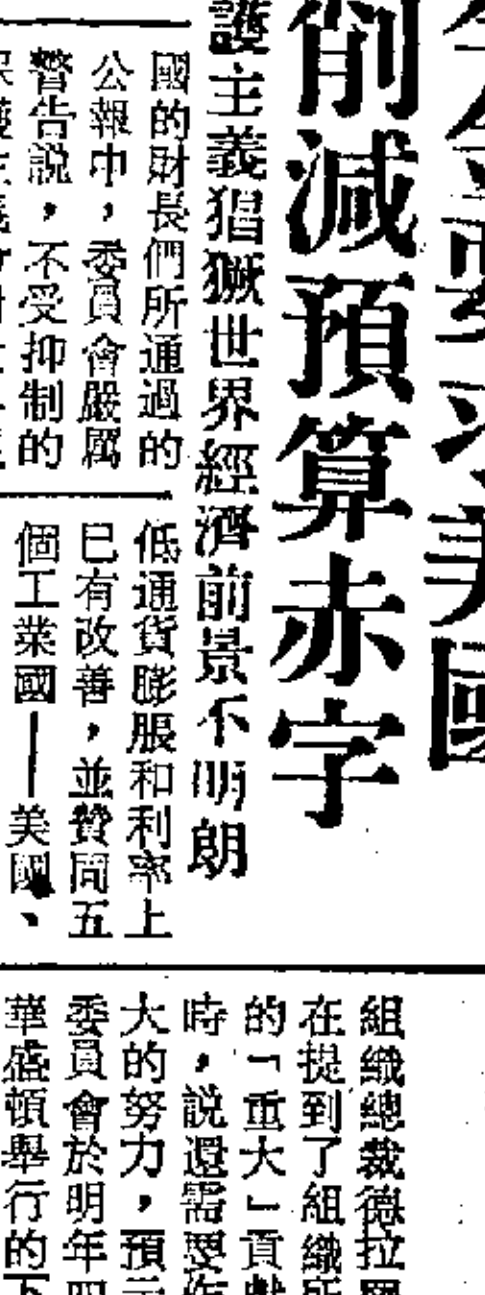 美國
削減預算赤字
護主義猖獗世界經濟前景不明朗
國的財長們所通過的
公報中，委員會嚴厲
警告説，不受抑制的
低通貨膨脹和利率上
已有改善，並贊同五
個工業國——美國、
組織總裁德拉
在提到了組織所
的「重大」貢獻
時，説還需要作
大的努力，預示
委員會於明年四
華盛頓舉行的下